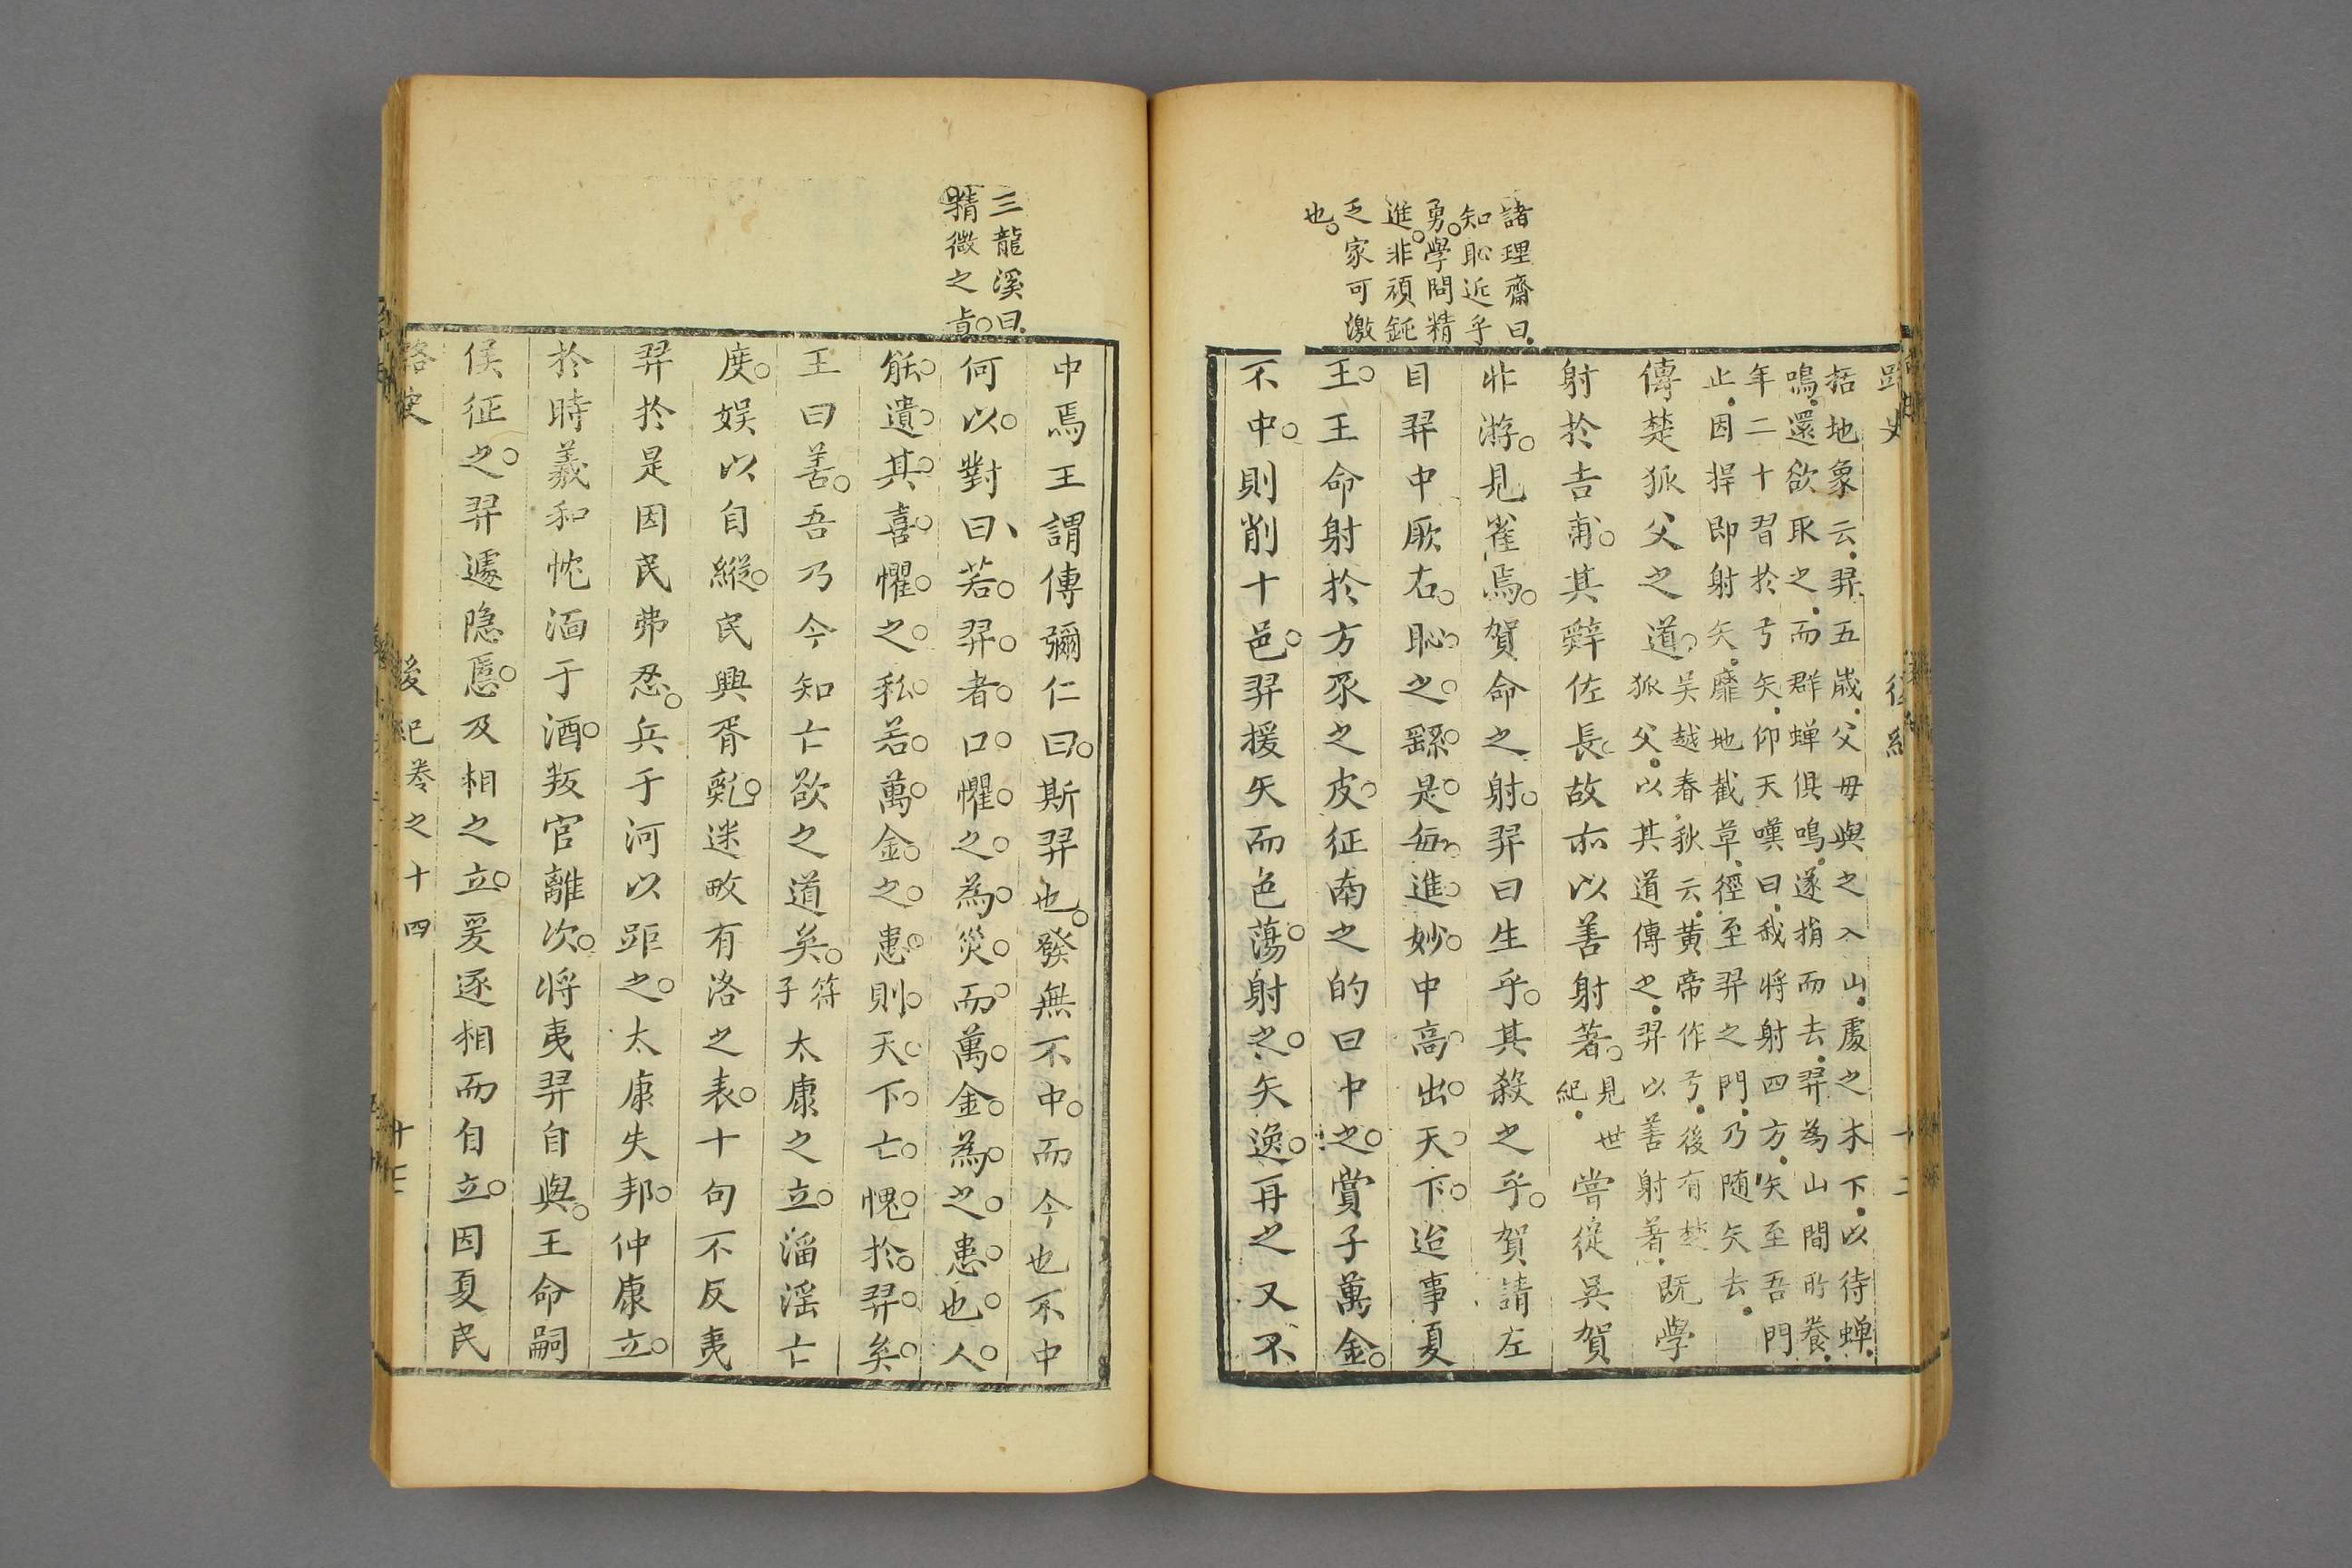 諸理齋曰
知恥近乎
勇學問精
進非頑鈍
乏家可激
也
路史
後紀
十二
括地象云羿五歲父母與之入山處之木下以待蟬
鳴還欲取之而群蟬俱鳴遂捐而去羿為山間所養
年二十習於弓矢仰天嘆曰我將射四方矢至吾門
止因捍即射矢靡地截草徑至羿之門乃随矢去
傳楚狐父之道
吴越春秋云黄帝作弓後有楚
狐父以其道傳之羿以善射著
既學
射於吉甫其辤佐長故亦以善射著
見世
紀
嘗從吳賀
北游見雀焉賀命之射羿曰生乎其殺之乎賀請左
目羿中厥右恥之繇是每進妙中高出天下迨事夏
王王命射於方豕之皮征南之的曰中之賞子萬金
不中則削十邑羿援矢而色蕩射之矢逸再之又不
三龍溪曰
精微之㫖
中焉王謂傅彌仁曰斯羿也發無不中而今也不中
何以對曰若羿者口懼之為災而萬金為之患也人
能遺其喜懼之私若萬金之患則天下亡愧於羿矣
王曰善吾乃今知亡欲之道矣
符
子
太康之立滔滛亡
度娱以自縱民興胥亂迷畋有洛之表十旬不反夷
羿於是因民弗忍兵于河以距之太康失邦仲康立
於時羲和忱湎于酒叛官離次將夷羿自與王命嗣
侯征之羿遽隐慝及相之立爰逐相而自立因夏民
路史
後紀卷之十四
十三